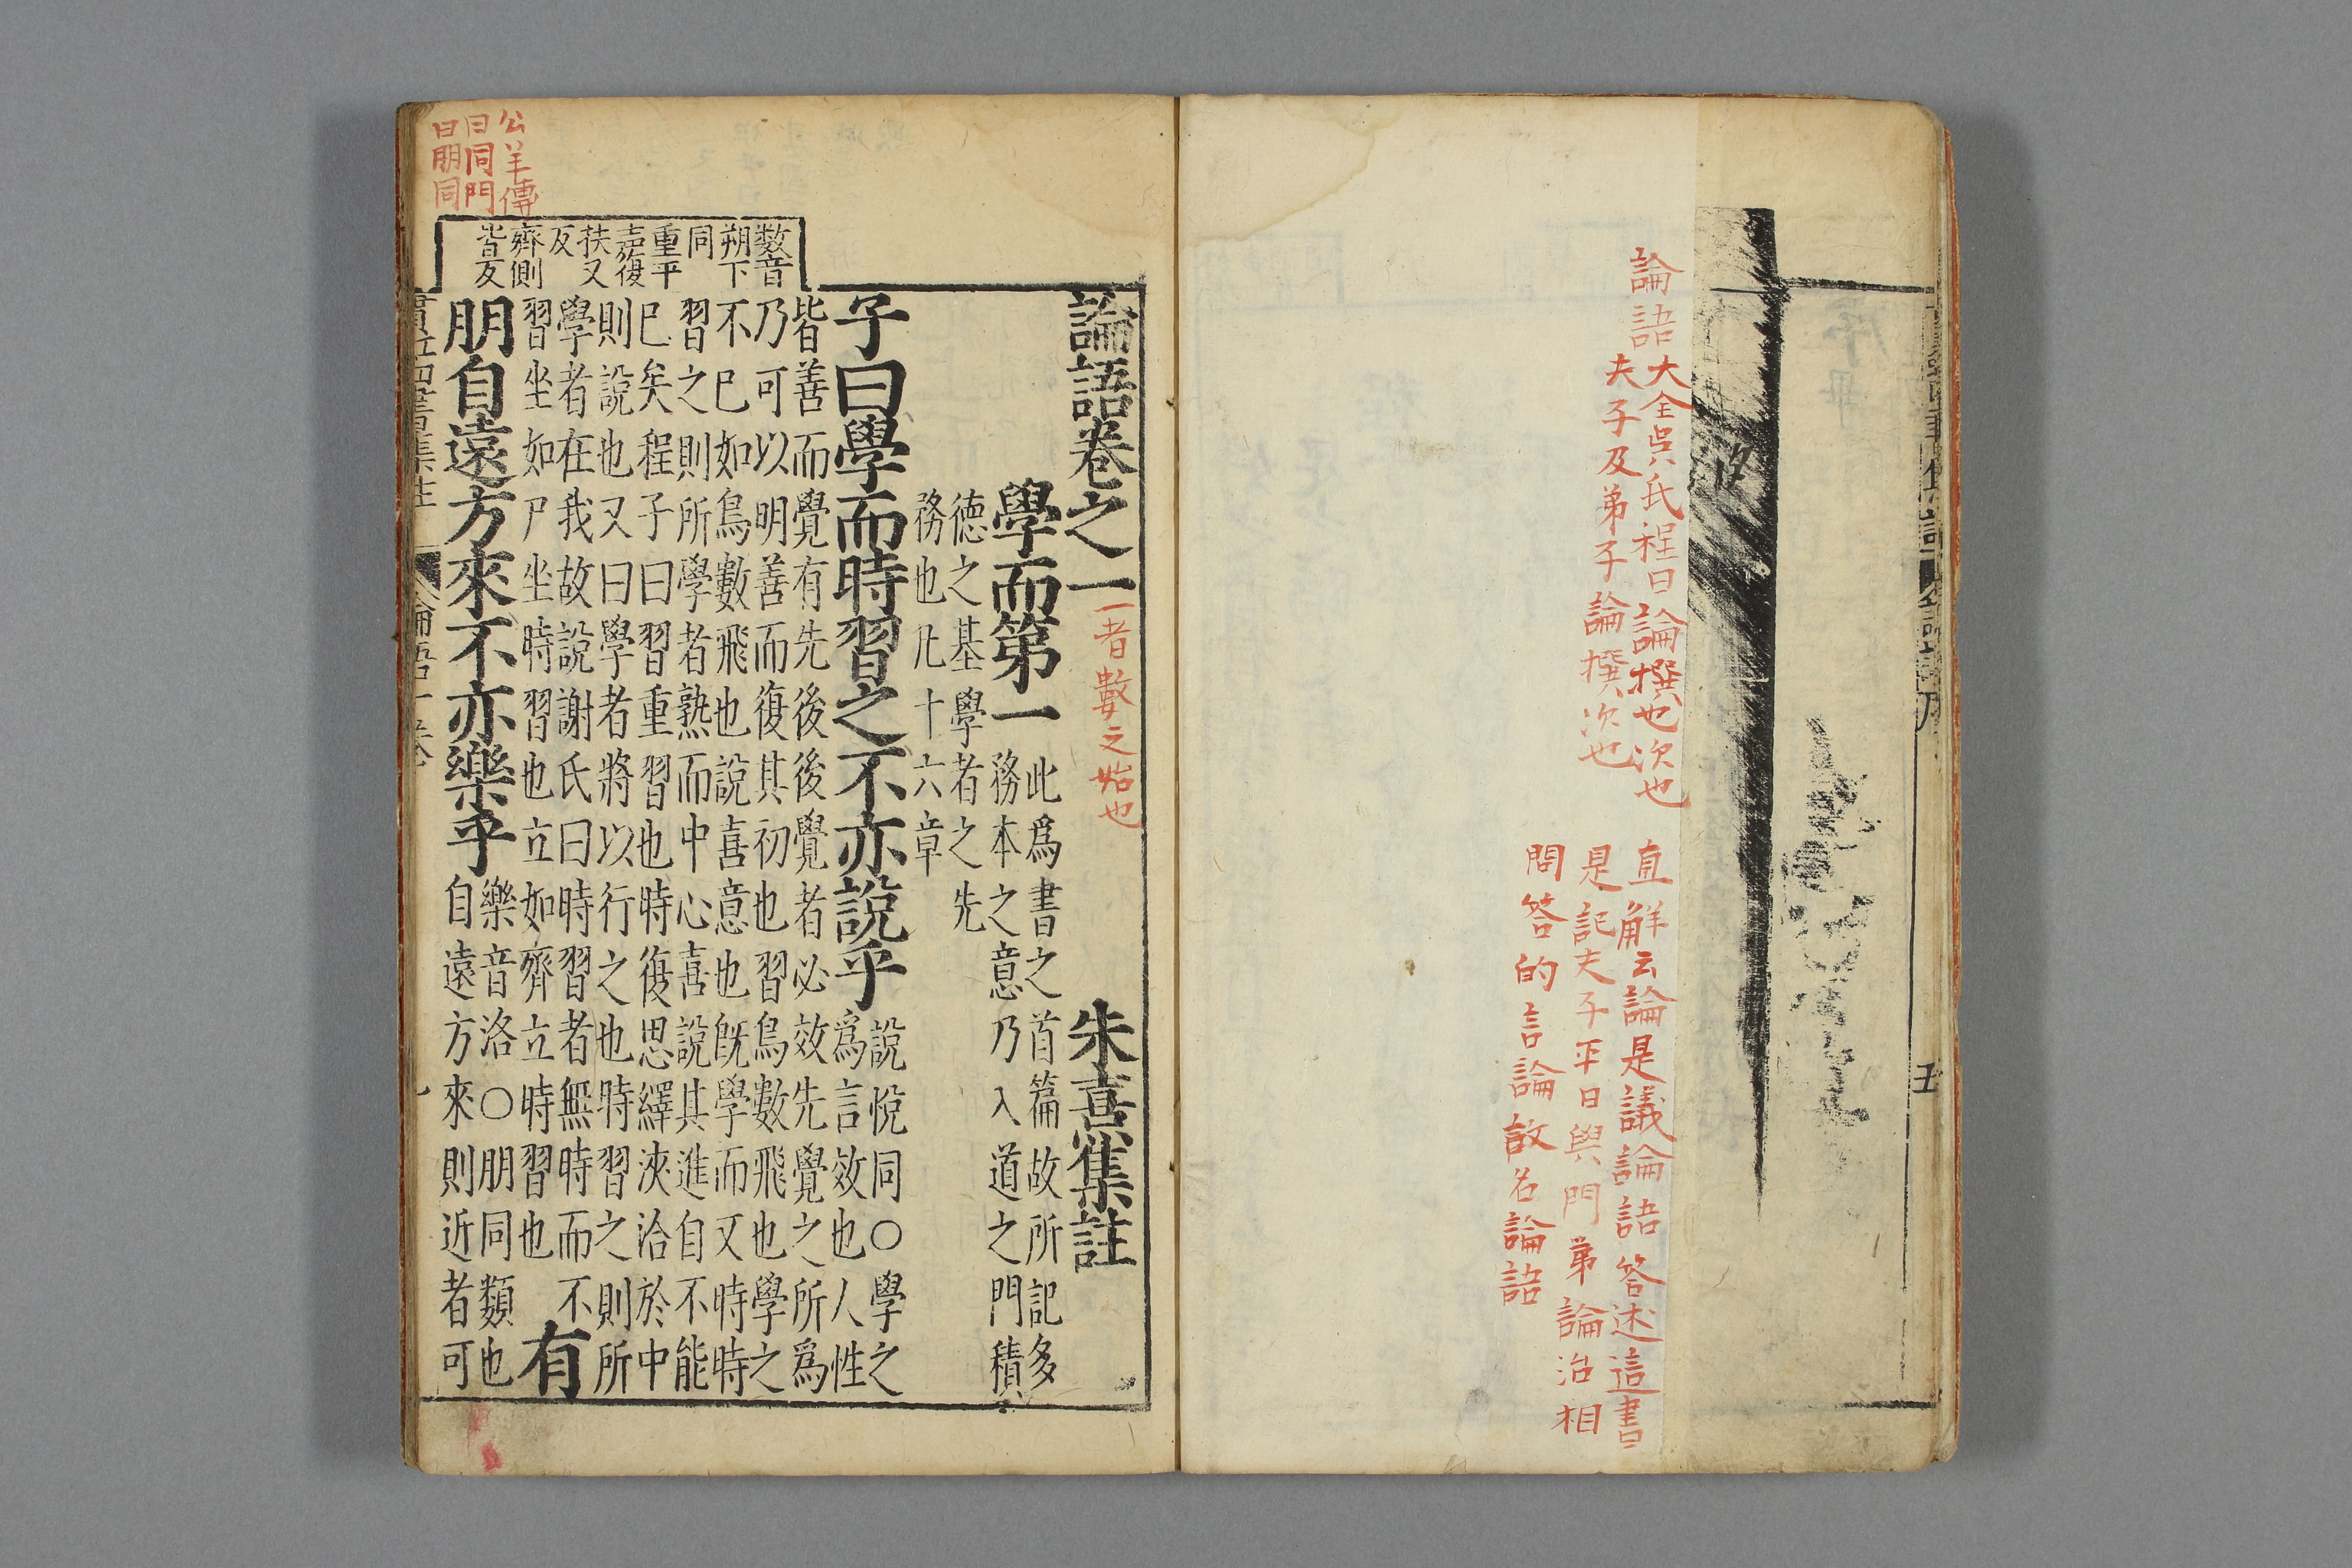 五
論語
大全吳氏程曰論撰也次也
夫子及弟子論撰次也
直解云論是議論語答述這書
是記夫子平日與門弟論治相
問答的言論故名論語
論語卷之一
一者數之始也
朱熹集註
學而第一
此爲書之首篇故所記多
務本之意乃入道之門積
德之基學者之先
務也凡十六章
子曰學而時習之不亦說乎
說悅同○學之
爲言效也人性
皆善而覺有先後後覺者必效先覺之所爲
乃可以明善而復其初也習鳥數飛也學之
不已如鳥數飛也說喜意也旣學而又時時
習之則所學者熟而中心喜說其進自不能
已矣程子曰習重習也時復思繹浹洽於中
則說也又曰學者將以行之也時習之則所
學者在我故說謝氏曰時習者無時而不
習坐如尸坐時習也立如齊立時習也
有
朋自遠方來不亦樂乎
樂音洛○朋同類也
自遠方來則近者可
數音
朔下
同
重平
聲復
扶又
反
齊側
皆反
公羊傳
曰同門
曰朋同